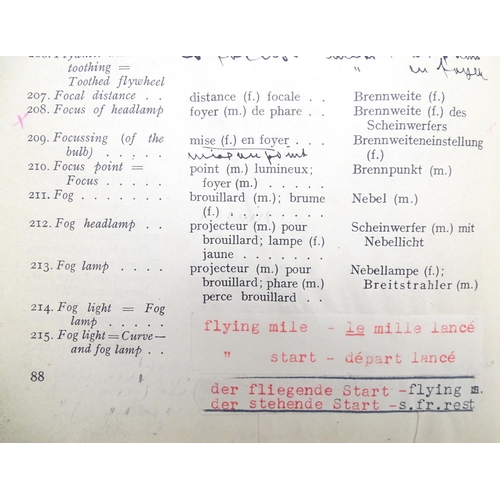 toothing =
Toothed flywheel
207. Focal distance . . distance (f.) focale . . Brennweite (f.)
208. Focus of headlamp foyer (m.) de phare . . Brennweite (f.) des
Scheinwerfers
209. Focussing (of the mise (f.) en foyer . . . Brennweiteneinstellung
bulb) . . . . . mise au point (f.)
210. Focus point = point (m.) lumineux; Brennpunkt (m.)
Focus . . . . . foyer (m.) . . . . .
211. Fog . . . . . . brouillard (m.); brume Nebel (m.)
(f.) . . . . . . . .
212. Fog headlamp . . projecteur (m.) pour Scheinwerfer (m.) mit
brouillard; lampe (f.) Nebellicht
jaune . . . . . . .
213. Fog lamp . . . . projecteur (m.) pour Nebellampe (f.);
brouillard; phare (m.) Breitstrahler (m.)
perce brouillard . .
214. Fog light = Fog
lamp . . . . .
215. Fog light=Curve—
and fog lamp . .
flying mile - le mille lancé
" start - départ lancé
der fliegende Start -flying s.
der stehende Start -s.fr.rest
88